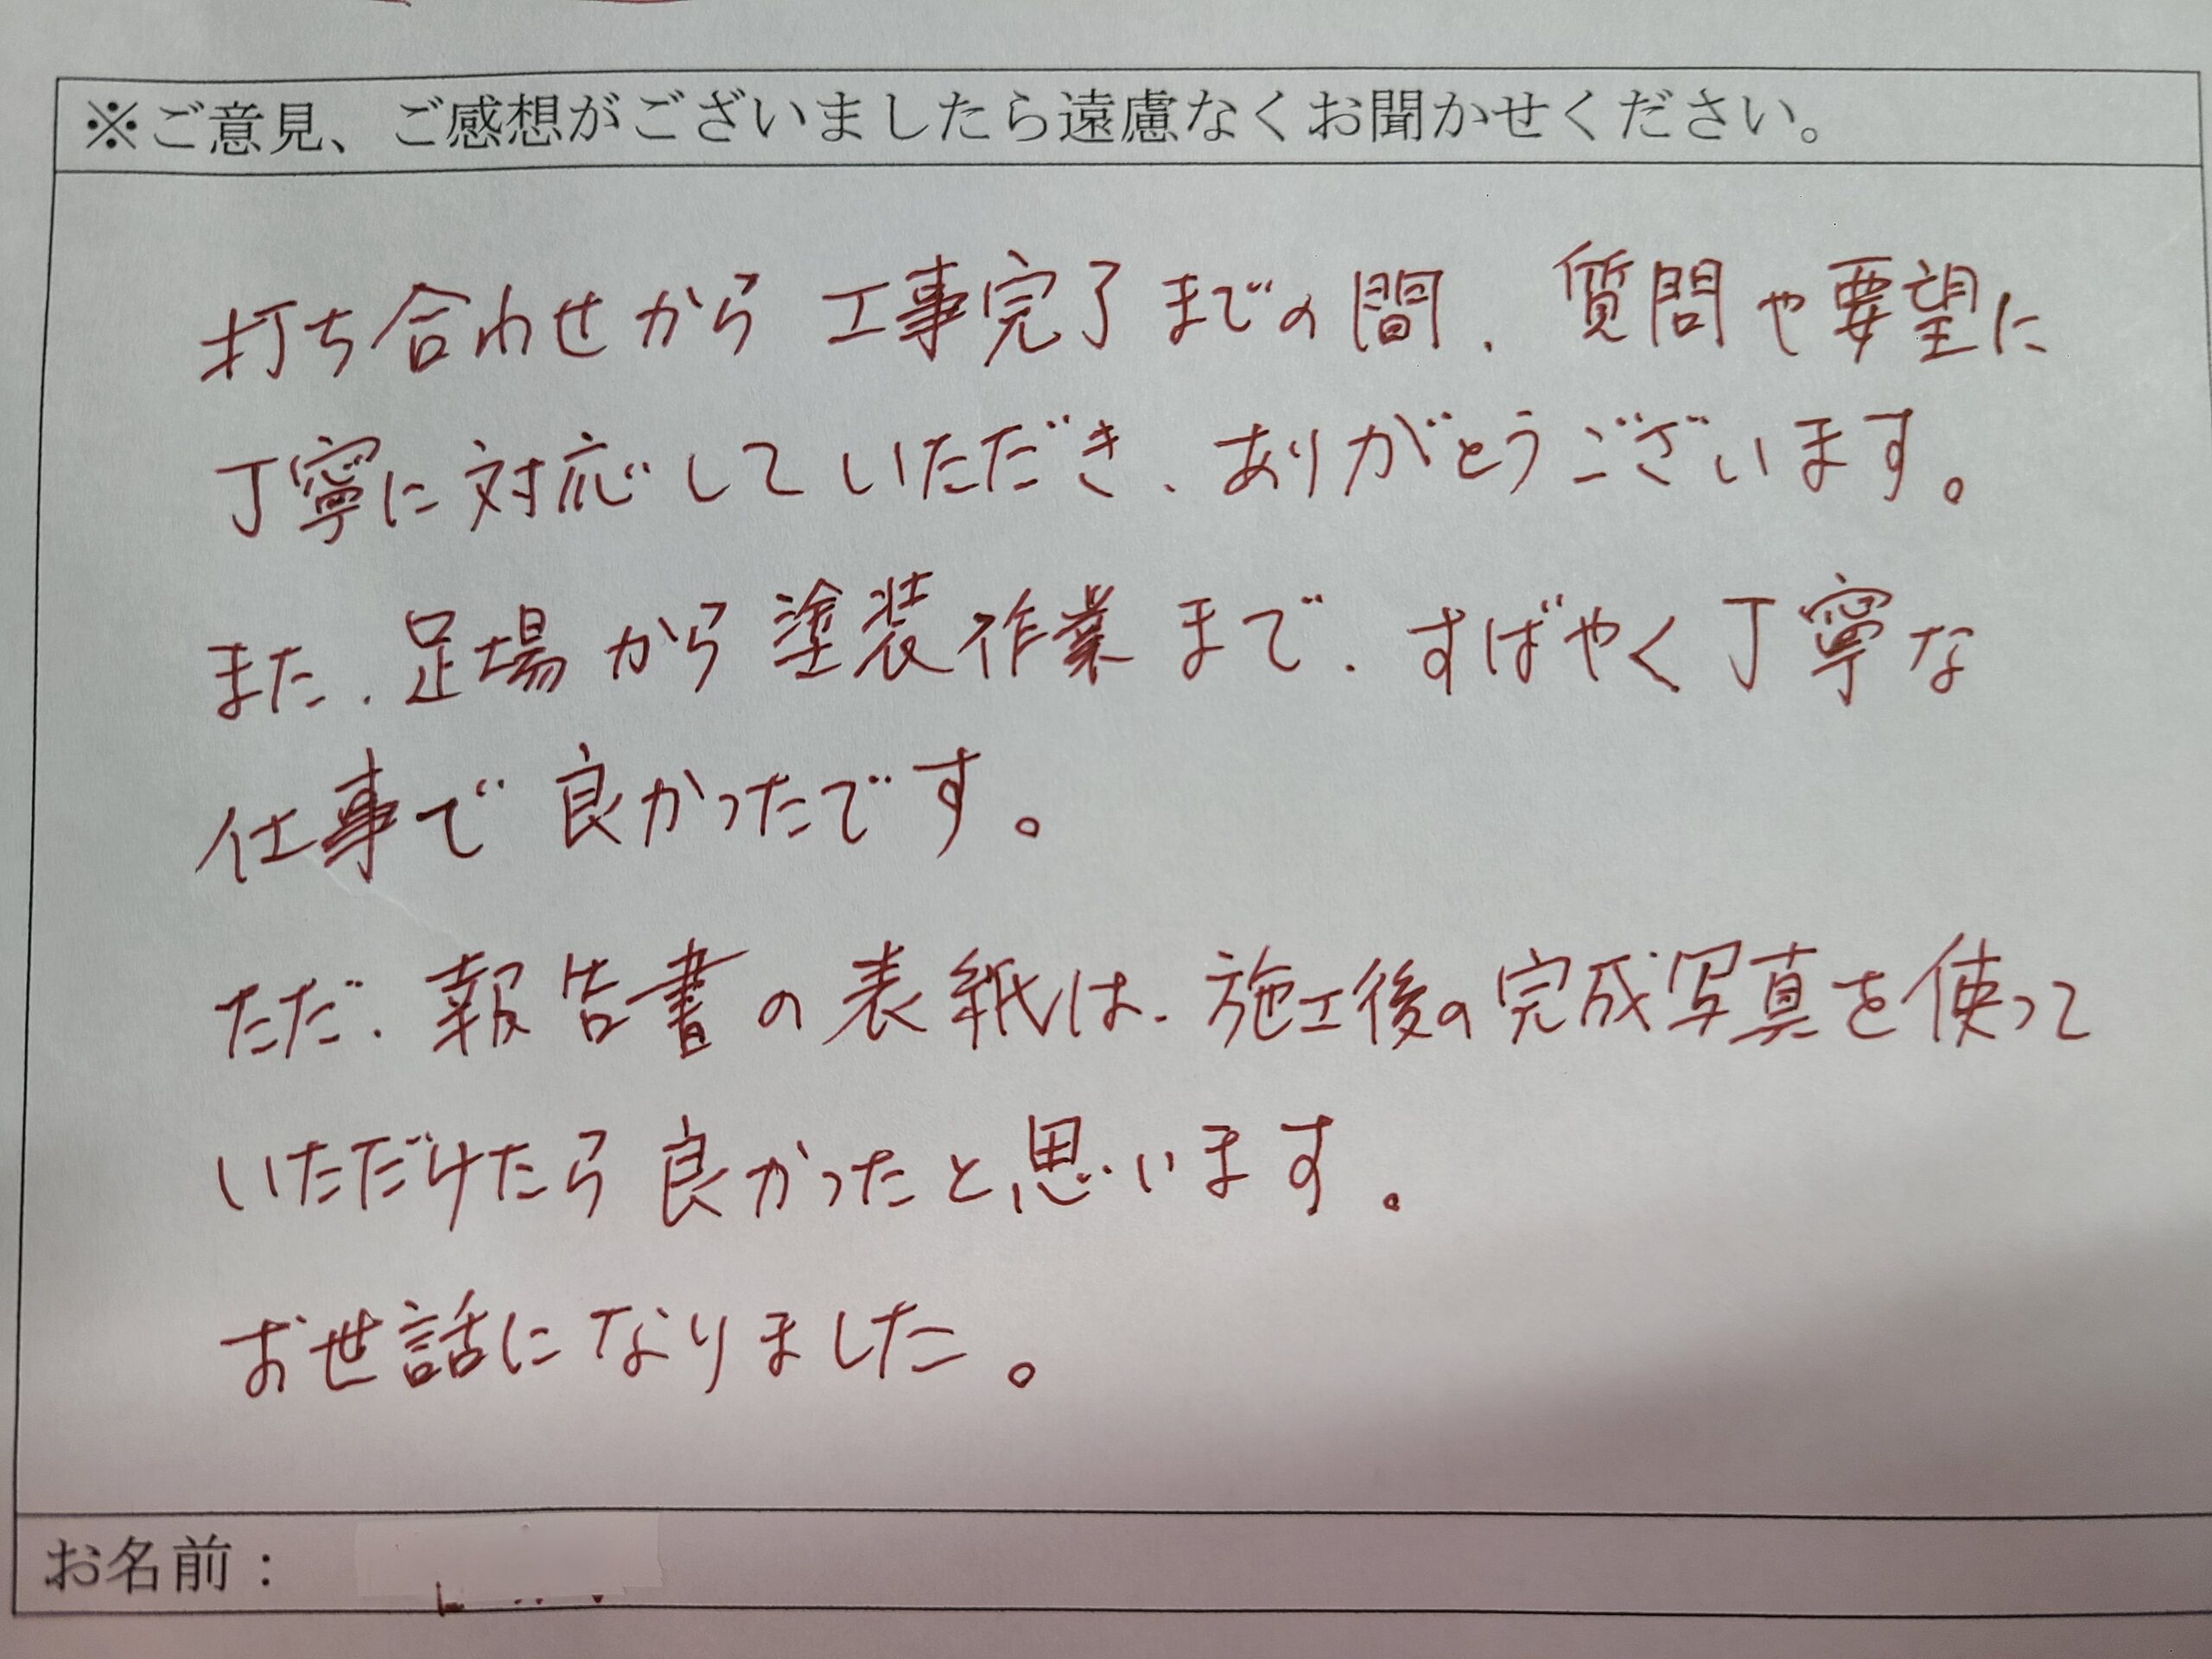 ※ご意見、ご感想がございましたら遠慮なくお聞かせください。
打ち合わせから工事完了までの間、質問や要望に
丁寧に対応していただき、ありがとうございます。
また、足場から塗装作業まで、すばやく丁寧な
仕事で良かったです。
ただ、報告書の表紙は、施工後の完成写真を使って
いただけたら良かったと思います。
お世話になりました。
お名前：